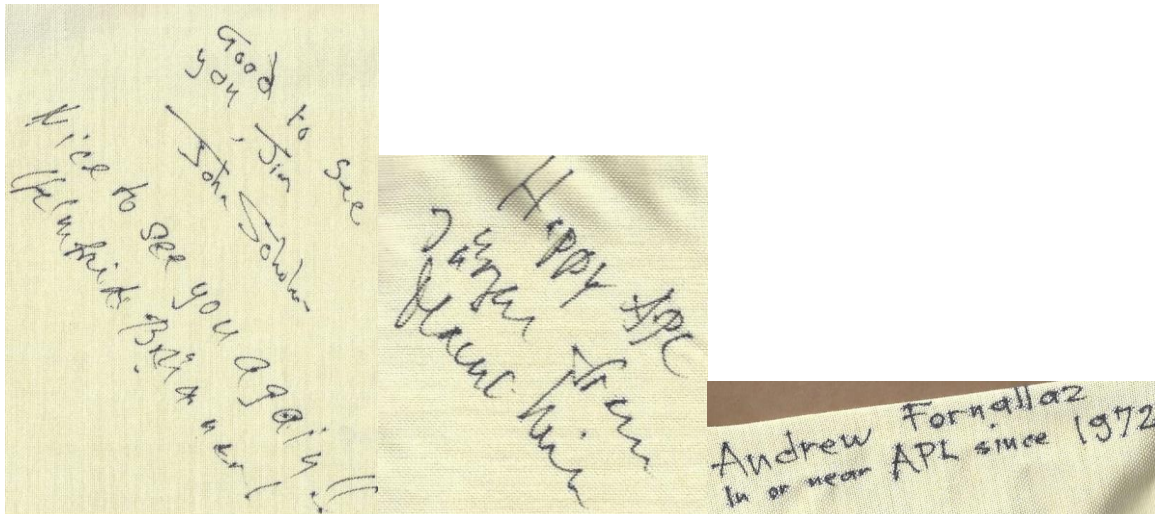 Good to see
you, Jim
John Scholes
Nice to see you again!!
Happy APL
from
Andrew Fornallaz
In or near APL since 1972